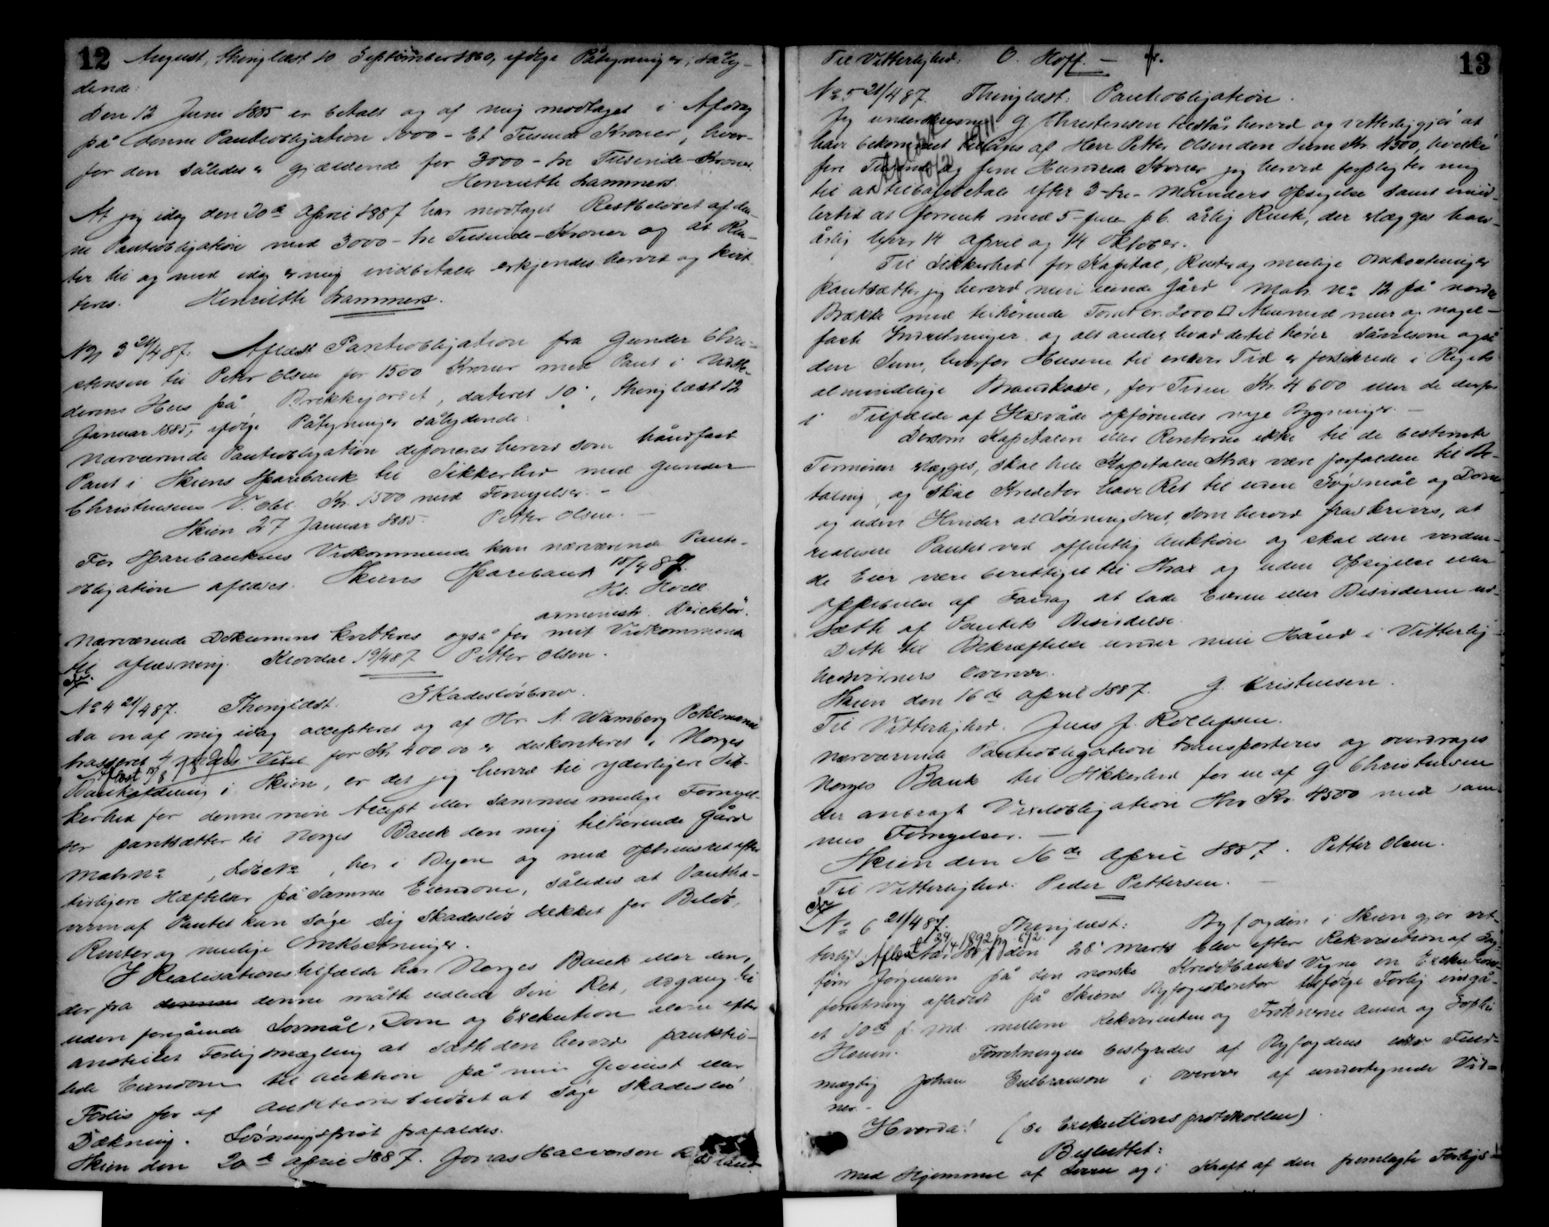 12
August, Thinglæst 10 September 1880, ifølge Påtegninger, såly-
dende.
Den 12 Juni 1885 er betalt og af mig modtaget i Afdrag
på denne Panteobligation 1000 - Et Tusende Kroner, hvor-
for den således er gjældende for 3000 - tre Tusende Kroner
Henriette Lammers
At jeg idag den 20de April 1887 har modtaget Restbeløbet af den-
ne Panteobligation med 3000 - tre Tusinde - Kroner og at Ren-
ter til og med idag er mig indbetalte erkjendes herved og kvit-
teres. Henriette Lammers.
No 3 21/4 87. Aflæst Panteobligation fra Gunder Chri-
stensen til Peter Olsen for 1500 Kroner med Pant i
Hus på Brekkejordet, dateret 10, Thinglæst 12
Januar 1885, ifølge Påtegninger sålydende:
Nærværende Panteobligation deponeres herved som håndfaat
Pant i Skiens Sparebank til Sikkerhed med Gunder
Christensens V. obl. Kr. 1500 med Fornyelser. -
Skien 27 Januar 1885. Petter Olsen. -
For Sparebankens Vedkommende kan nærværende Pante-
obligation aflæses. Skiens Sparebank 18/4 87.
Kr. Holl
administr. Direktør.
Nærværende Dokument kvitteres også for mit Vedkommende
til aflæsning. Klovdal 19/4 87 Petter Olsen.
No 4 21/4 87. Thinglæst. Skadesløsbrev.
Da en af mig idag accepteret og af Hr. N. Wamberg Pohlmann
trasseret Vexel for Kr. 400 00 er diskonteret i Norges
Bankafdeling i Skien, er det jeg herved til yderligere Sik-
kerhed for denne min Accept eller sammes mulige Fornyel-
ser pantsætter til Norges Bank den mig tilhørende Gård
Matr. No , her i Byen og med Opt efter
tidligere Hæftelser på samme Eiendom, således at Pantha-
veren af Pantet kan søge sig skadesløs dækket for Beløb,
Renter og mulige Omkostninger.
I Realisationstilfælde har Norges Bank eller den,
der fra denne måtte udlede sin Ret, adgang til
uden foregående Søxmål, Dom og Exekution alene efter
anstillet Forligsmægling at sætte den herved pantsæt-
tede Eiendom til Auktion på min Gevinst eller
Forlis for af Auktionsbeløbet at søge skadesløs
Dækning. Løsningsfrist frafaldes.
Skien den 20de April 1887. Jonas Halvorsen
13
Til Vitterlighed. O. Hoff - fr.
No 5 21/4 87 Thinglæst: Panteobligation.
Jeg undertegnede G Christensen tilstår herved og vitterliggjør at
have bekommet tillåns af Herr Petter Olsen den Sum Kr. 4500, hvilke
fire Tusinde og fem Hundrede Kroner jeg herved forpligter mig
til at tilbagebetale efter 3 - tre - Måneders Opsigelse samt imid-
lertid at forrente med 5 - fem p C. årlig Rente, der erlægges halv-
årlig hver 14 April og 14 Oktober.
Til Sikkerhed for Kapital, Renter og mulige Omkostninger
pantsætter jeg herved min eiende Gård Matr No 12 på nordre
Brække med tilhørende Tomt er. 2000 □ Alen med mur og nagel-
fast Indretninger og alt andet hvad dertil hører såvelsom også
den Sum, hvorfor Husene til enhver Tid er forsikrede i Rigets
almindelige Brandkasse, for Tiden Kr. 4600 eller de derfor
i Tilfælde af Ildsvåde opførendes nye Bygninger. -
Dersom Kapitalen eller Renterne ikke til de bestemte
Terminer erlægges, skal hele Kapitalen strax være forfalden til Be-
taling, og skal Kreditor have Ret til uden Søgsmål og Dom
og uden Hinder af Løsningsret, som herved fraskrives, at
realisere Pantet ved offentlig Auktion og skal den vorden-
de Eier være berettiget til strax og uden Opsigelse eller
af Fardag at lade Eieren eller Besidderen ud-
sætte af Pantets Besiddelse.
Dette til Bekræftelse under min Hånd i Vitterlig-
hedsvidners Overvær.
Skien den 16de April 1887. G Cristensen.
Til Vitterlighed. Jens J. Rollefsen.
Nærværende Panteobligation transporteres og overdrages
Norges Bank til Sikkerhed for en af G Christensen
der anbragt Vexelobligation Stor Kr. 4500 med sam-
mes Fornyelser. -
Skien den 16de April 1887. Petter Olsen.
Til Vitterlighed. Peder Pettersen. -
No 6 21/4 87. Thinglæst: Byfogden i Skien gjør vit-
terligt: den 28 Marts blev efter Rekvisition af
Jørgensen på den norske Kreditbanks Vegne en Exekutions-
forretning afholdt på Skiens Byfogedkontor ifølge Forlig indgå-
et 10de f. md mellem Rekvirenten og Frøknerne Anna og Sophie
Houen. Forretningen bestyredes af Byfogdens edsv Fuld-
mægtig Johan Gulbranson i Overvær af undertegnede Vid-
ner. -
Hvorda: (se Exekutionsprotokollen)
Besluttet:
Med Hjemmel af Loven og i Kraft af den fremlagte Forligs-